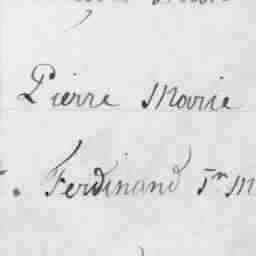 Pierre Marie
Ferdinand Jn M